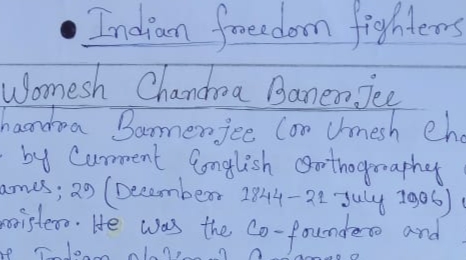 • Indian freedom fighters
Womesh Chandra Banerjee
handra Bannerjee (or Umesh Cha
by Current English Orthography
ames; 29 (December 1844-21 July 1906)
rrister. He was the co-founder and
Indian National Congress